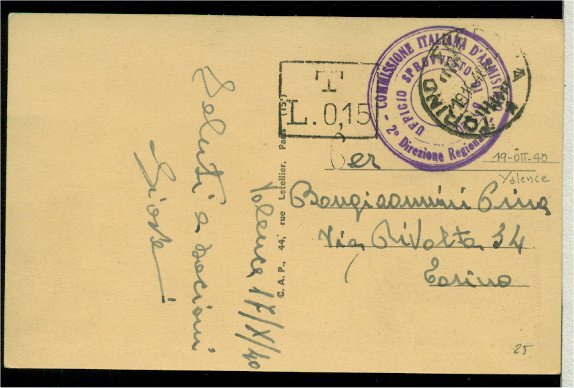 Saluti e bacioni
Valence 17/X/40
C. A. P., 44, rue Letellier, Paris (15e)
T
L. 0,15
COMMISSIONE ITALIANA D'ARMIS
UFFICIO
2ª Direzione Regionale
TORINO
19-VII-40
Valence
Per
Bongioannini Pina
Via Rivalta 34
Torino
25